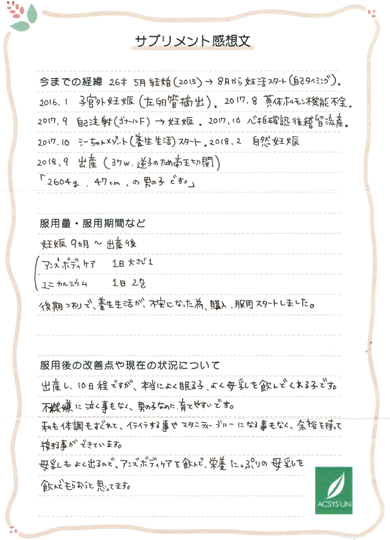 サプリメント感想文
今までの経緯 26才 5月 結婚(2015) → 8月から妊活スタート(自己タイミング)。
2016.1 子宮外妊娠(左卵管摘出)。2017.8 黄体ホルモン機能不全。
2017.9 自己注射(ゴナールF) → 妊娠。2017.10 心拍確認後稽留流産。
2017.10 (養生生活)スタート。2018.2 自然妊娠
2018.9 出産(37w.逆子のため帝王切開)
「2604g . 47cm . の男の子です。」
服用量・服用期間など
妊娠9ヵ月〜出産後
アンズボディケア 1日大さじ1
ユニカルシウム 1日2包
後期つわりで、養生生活が不安になった為、購入、服用スタートしました。
服用後の改善点や現在の状況について
出産し、10日程ですが、本当によく眠る子、よく母乳を飲んでくれる子です。
に泣く事もなく、男の子なのに育てやすいです。
私も体調もすぐれて、イライラする事やマタニティーブルーになる事もなく、余裕を持って
事ができています。
母乳もよく出るので、アンズボディケアを飲んで、栄養たっぷりの母乳を
飲んでもらおうと思ってます。
ACSYSUN